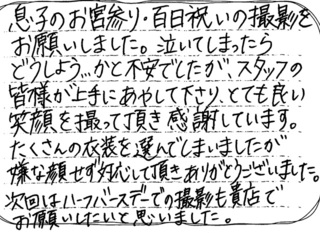 息子のお宮参り・百日祝いの撮影を
お願いしました。泣いてしまったら
どうしよう…かと不安でしたが、スタッフの
皆様が上手にあやして下さり、とても良い
笑顔を撮って頂き感謝しています。
たくさんの衣装を選んでしまいましたが
嫌な顔せず対応して頂きありがとうございました。
次回はハーフバースデーでの撮影も貴店で
お願いしたいと思いました。